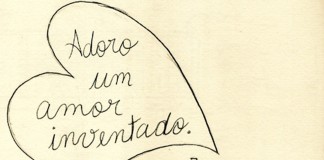 Adoro
um
amor
inventado.